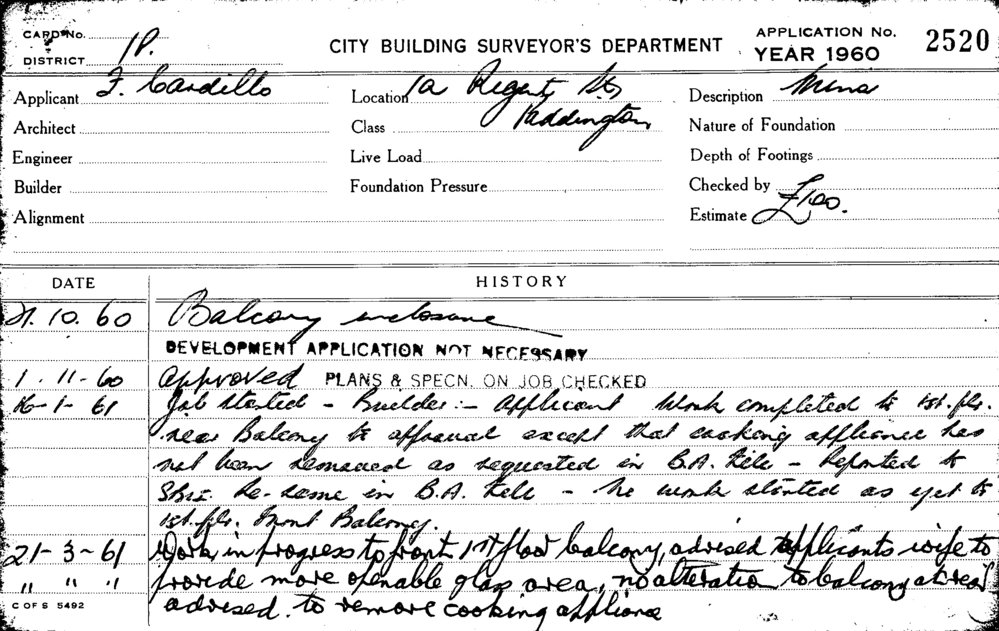 CARD No.
DISTRICT 1P.
CITY BUILDING SURVEYOR'S DEPARTMENT
APPLICATION No. 2520
YEAR 1960
Applicant F. Cardillo
Location 1a Regent St,
Paddington
Description Minor
Architect
Class
Nature of Foundation
Engineer
Live Load
Depth of Footings
Builder
Foundation Pressure
Checked by
Alignment
Estimate £100.
DATE HISTORY
21.10.60 Balcony enclosure
DEVELOPMENT APPLICATION NOT NECESSARY
1.11.60 Approved PLANS & SPECN. ON JOB CHECKED
16-1-61 Job started - Builder:- Applicant Work completed to 1st. flr.
rear Balcony to approval except that cooking appliance has
not been removed as requested in B.A. file - Reported to
re-same in B.A. file - No work started as yet to
1st. flr. Front Balcony.
21-3-61 Work in progress to front 1st floor balcony, advised applicants wife to
" " " provide more openable glass area, no alteration to balcony at rear
advised to remove cooking appliance
C OF S 5492